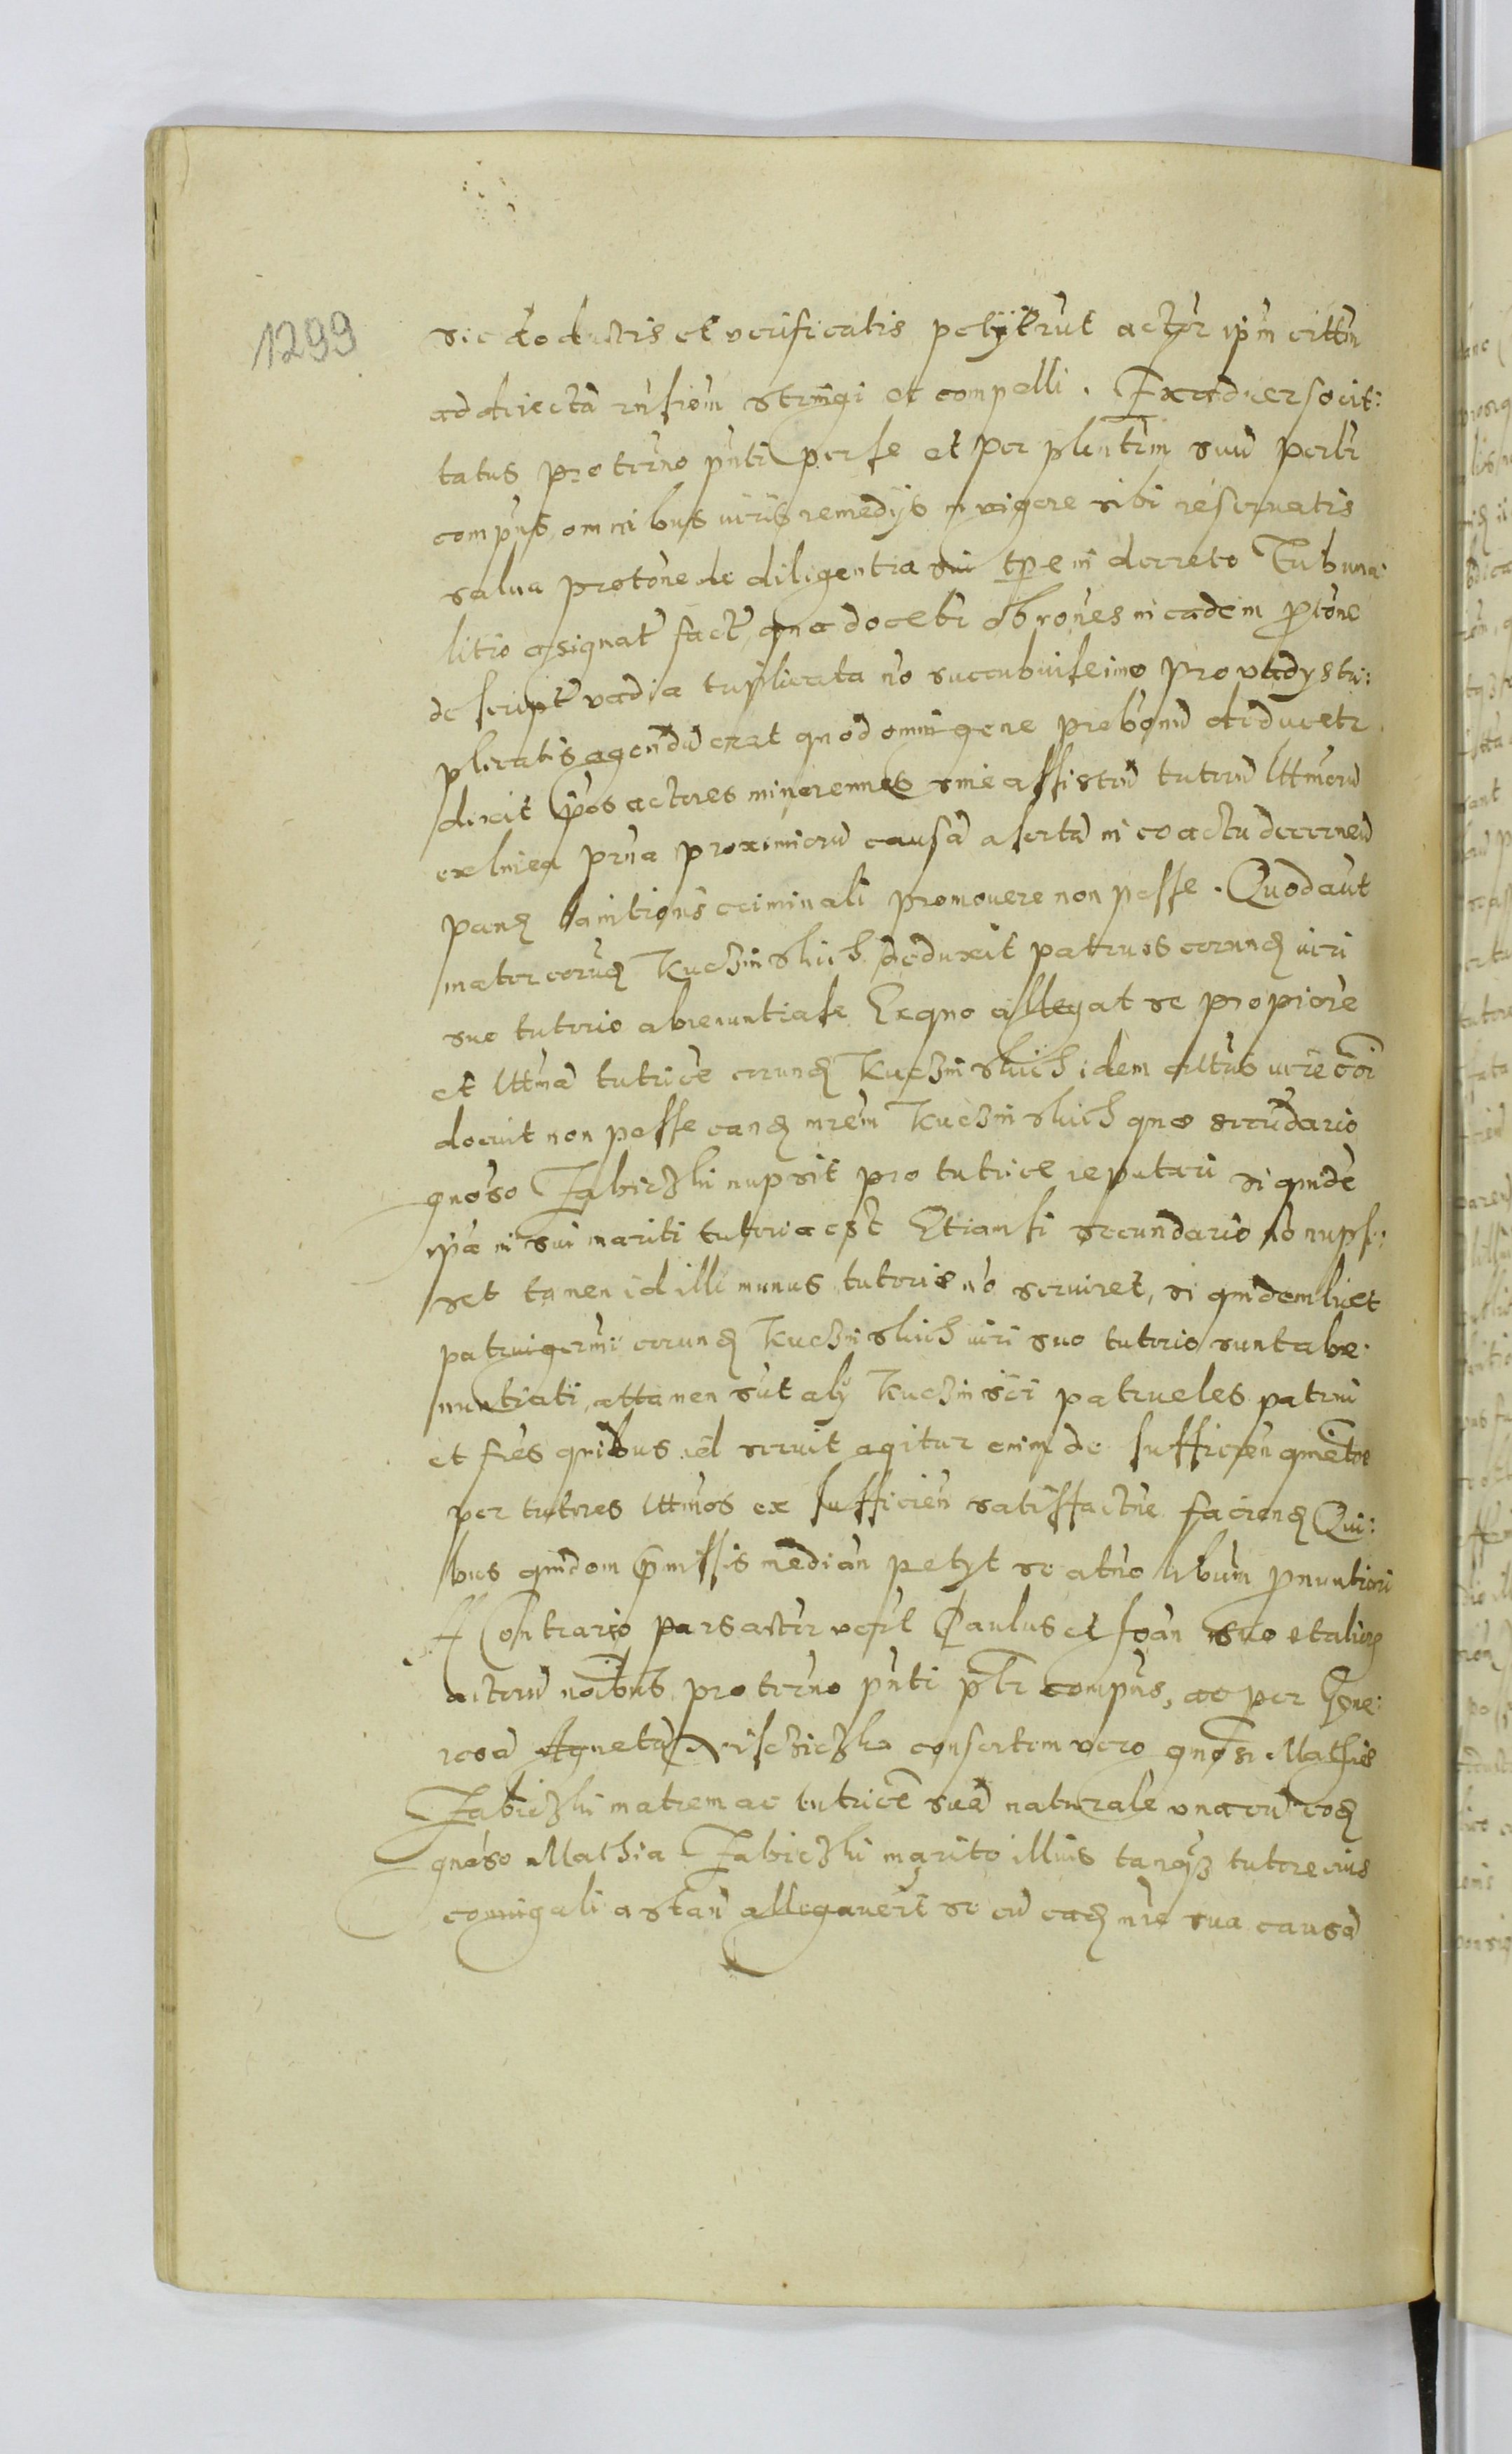 1299
sic deductis et verificatis petÿtrut actor ipm cittm
ad directã rnsiom stringi et compelli. Ex aduerso cit:
tatus pro termo pnti per se et per plentem suũ perlr
compns, omnibus iuris remedÿs in vigore sibi reseruatis
salua protone de diligentia sui tpe in decreto Tribuna:
litio assignat fact, qua docebr ob rones in eadem ptone
de script vadia triplicata no succubuisse imo pro vadÿs tri:
plicatis agendũ erat quod omnigene probonũ deducetr
dixit ipos actores minorennes sine assistũ tutorũ lttmorũ
ex linea prna proximiorũ causã assertã in eo actu decernen
panq banitionis criminali promouere non posse. Quod aut
mater eorũq Kuczinskich deduxit patruos eorunq viri
suo tutorio abrenuntiasse Ex quo allegat se propiore
et lttmã tutrice eorunq Kuczinskich idem cittus iure coi
docuit non posse eanq mrem Kuczinskich que secũdario
gnoso Zabiczki nupsit pro tutrice reputari siquide
ipa in sui mariti tutoria est Etiamsi secundario no nups:
set tamen id illi munus tutoris no seruiret, si quidem licet
patrui germi eorunq Kuczinskich iuri suo tutorio sunt abre:
nuntiati, attamen sut alÿ Kuczinsci patrueles patrui
et fres quibus id seruit agitur enim de sufficien qmetone
per tutores lttmos ex sufficien satisfactne facienq Qui:
bus quidem pmissis median petÿt se atno libum pnuntiari
A Contrario pars actor vest Paulus et Joan suo et aliorq
actorũ noibus pro termo pnti plr compns, ac per Gene:
rosã Agnetã consortem vero gnosi Mathie
Zabiczki matrem ac tutrice suã naturale vna cũ eoq
gnoso Mathia Zabiczki marito illius tanqz tutore eius
coniugali astan allegauert se cũ eaq mre sua causã